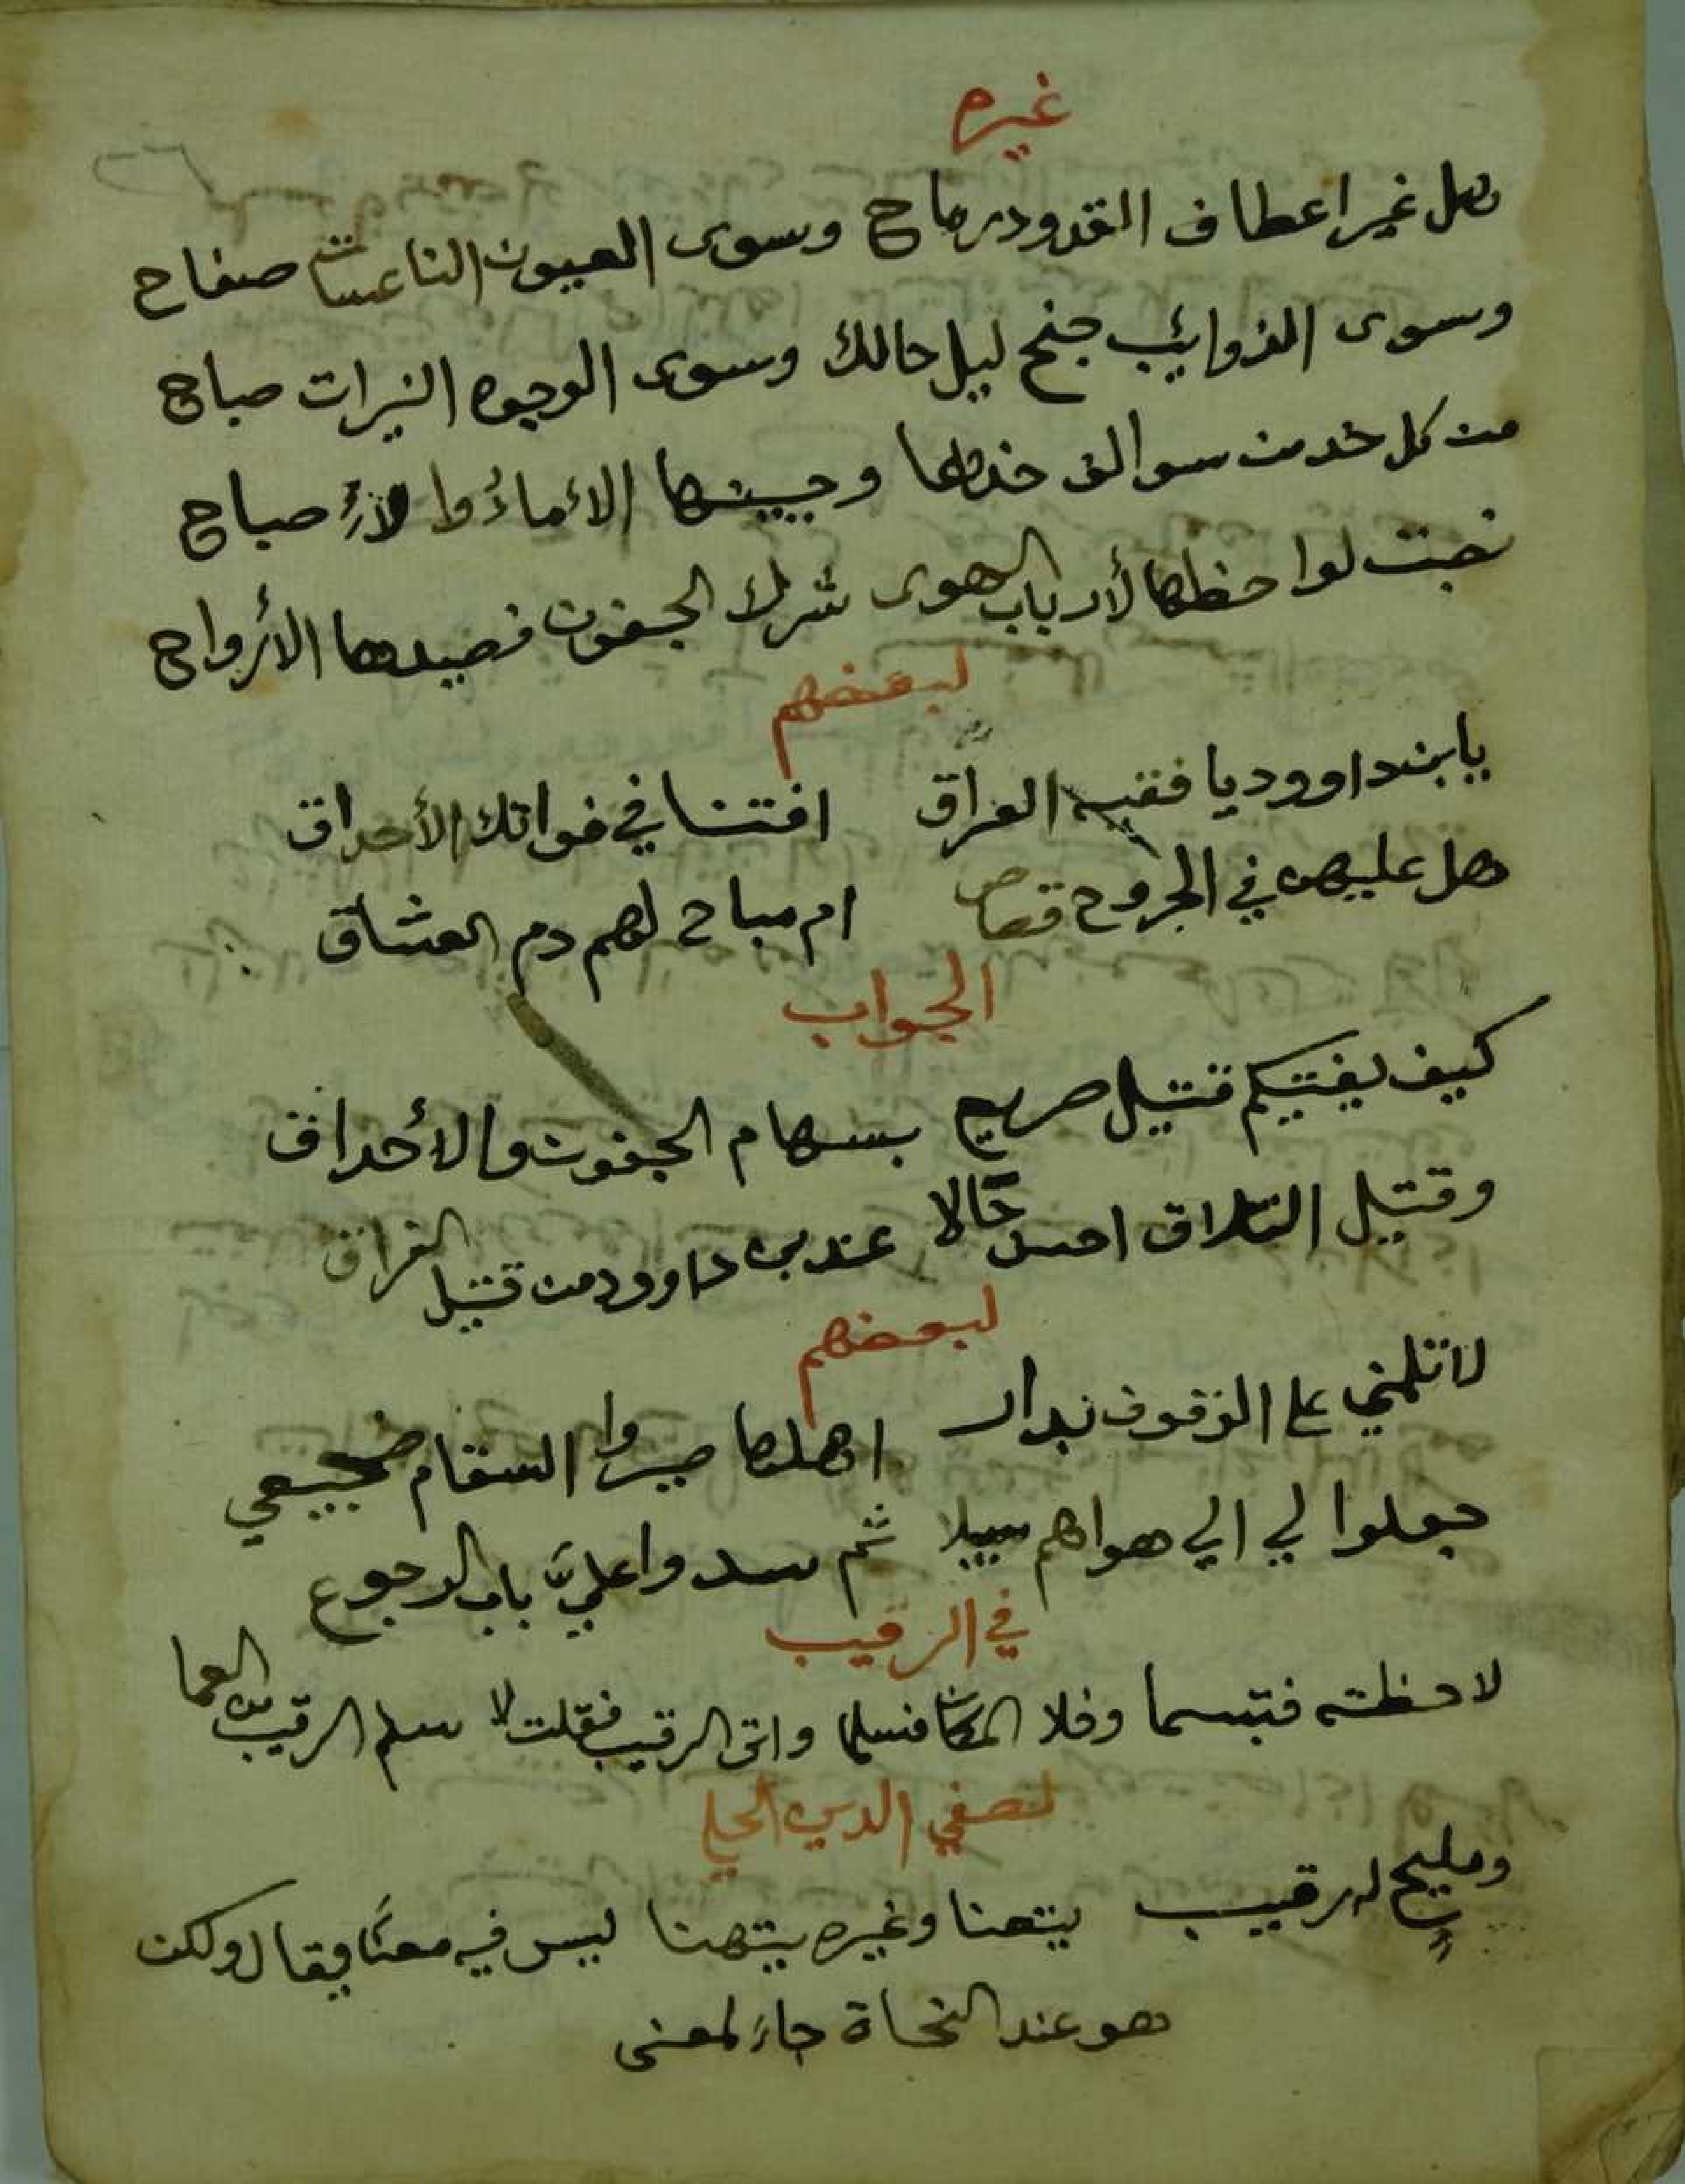 غيره
هل غير اعطاف القدود رماح وسوى العيون الناعسات صفاح
وسوى الذوائب جنح ليل حالك وسوى الوجوه النيرات صباح
من كل خد من سوالف خدها وجبينها الأماء والأصباح
نصبت لواحظها لأرباب الهوى شرك الجفون فصيدها الأرواح
لبعضهم
يا بن داوود يا فقيه العراق افتنا في فواتك الأحداق
هل عليهن في الجروح قصاص ام مباح لهم دم العشاق
الجواب
كيف يفتيكم قتيل صريع بسهام الجفون والأحداق
وقتيل التلاق احسن حالا عند بن داوود من قتيل الفراق
لبعضهم
لا تلمني على الوقوف بدار اهلها صيروا السقام ضجيعي
جعلوا لي الي هواهم سبيلا ثم سدوا عليَّ باب الرجوع
في الرقيب
لاحظته فتبسما وخلا المكان فسلما واتى الرقيب فقلت لا سلم الرقيب من العما
لصفي الدين الحلي
ومليح له رقيب يتعنا وغيره يتهنا ليس فيه معنًا يقال ولكن
هو عند النحاة جاء لمعنى